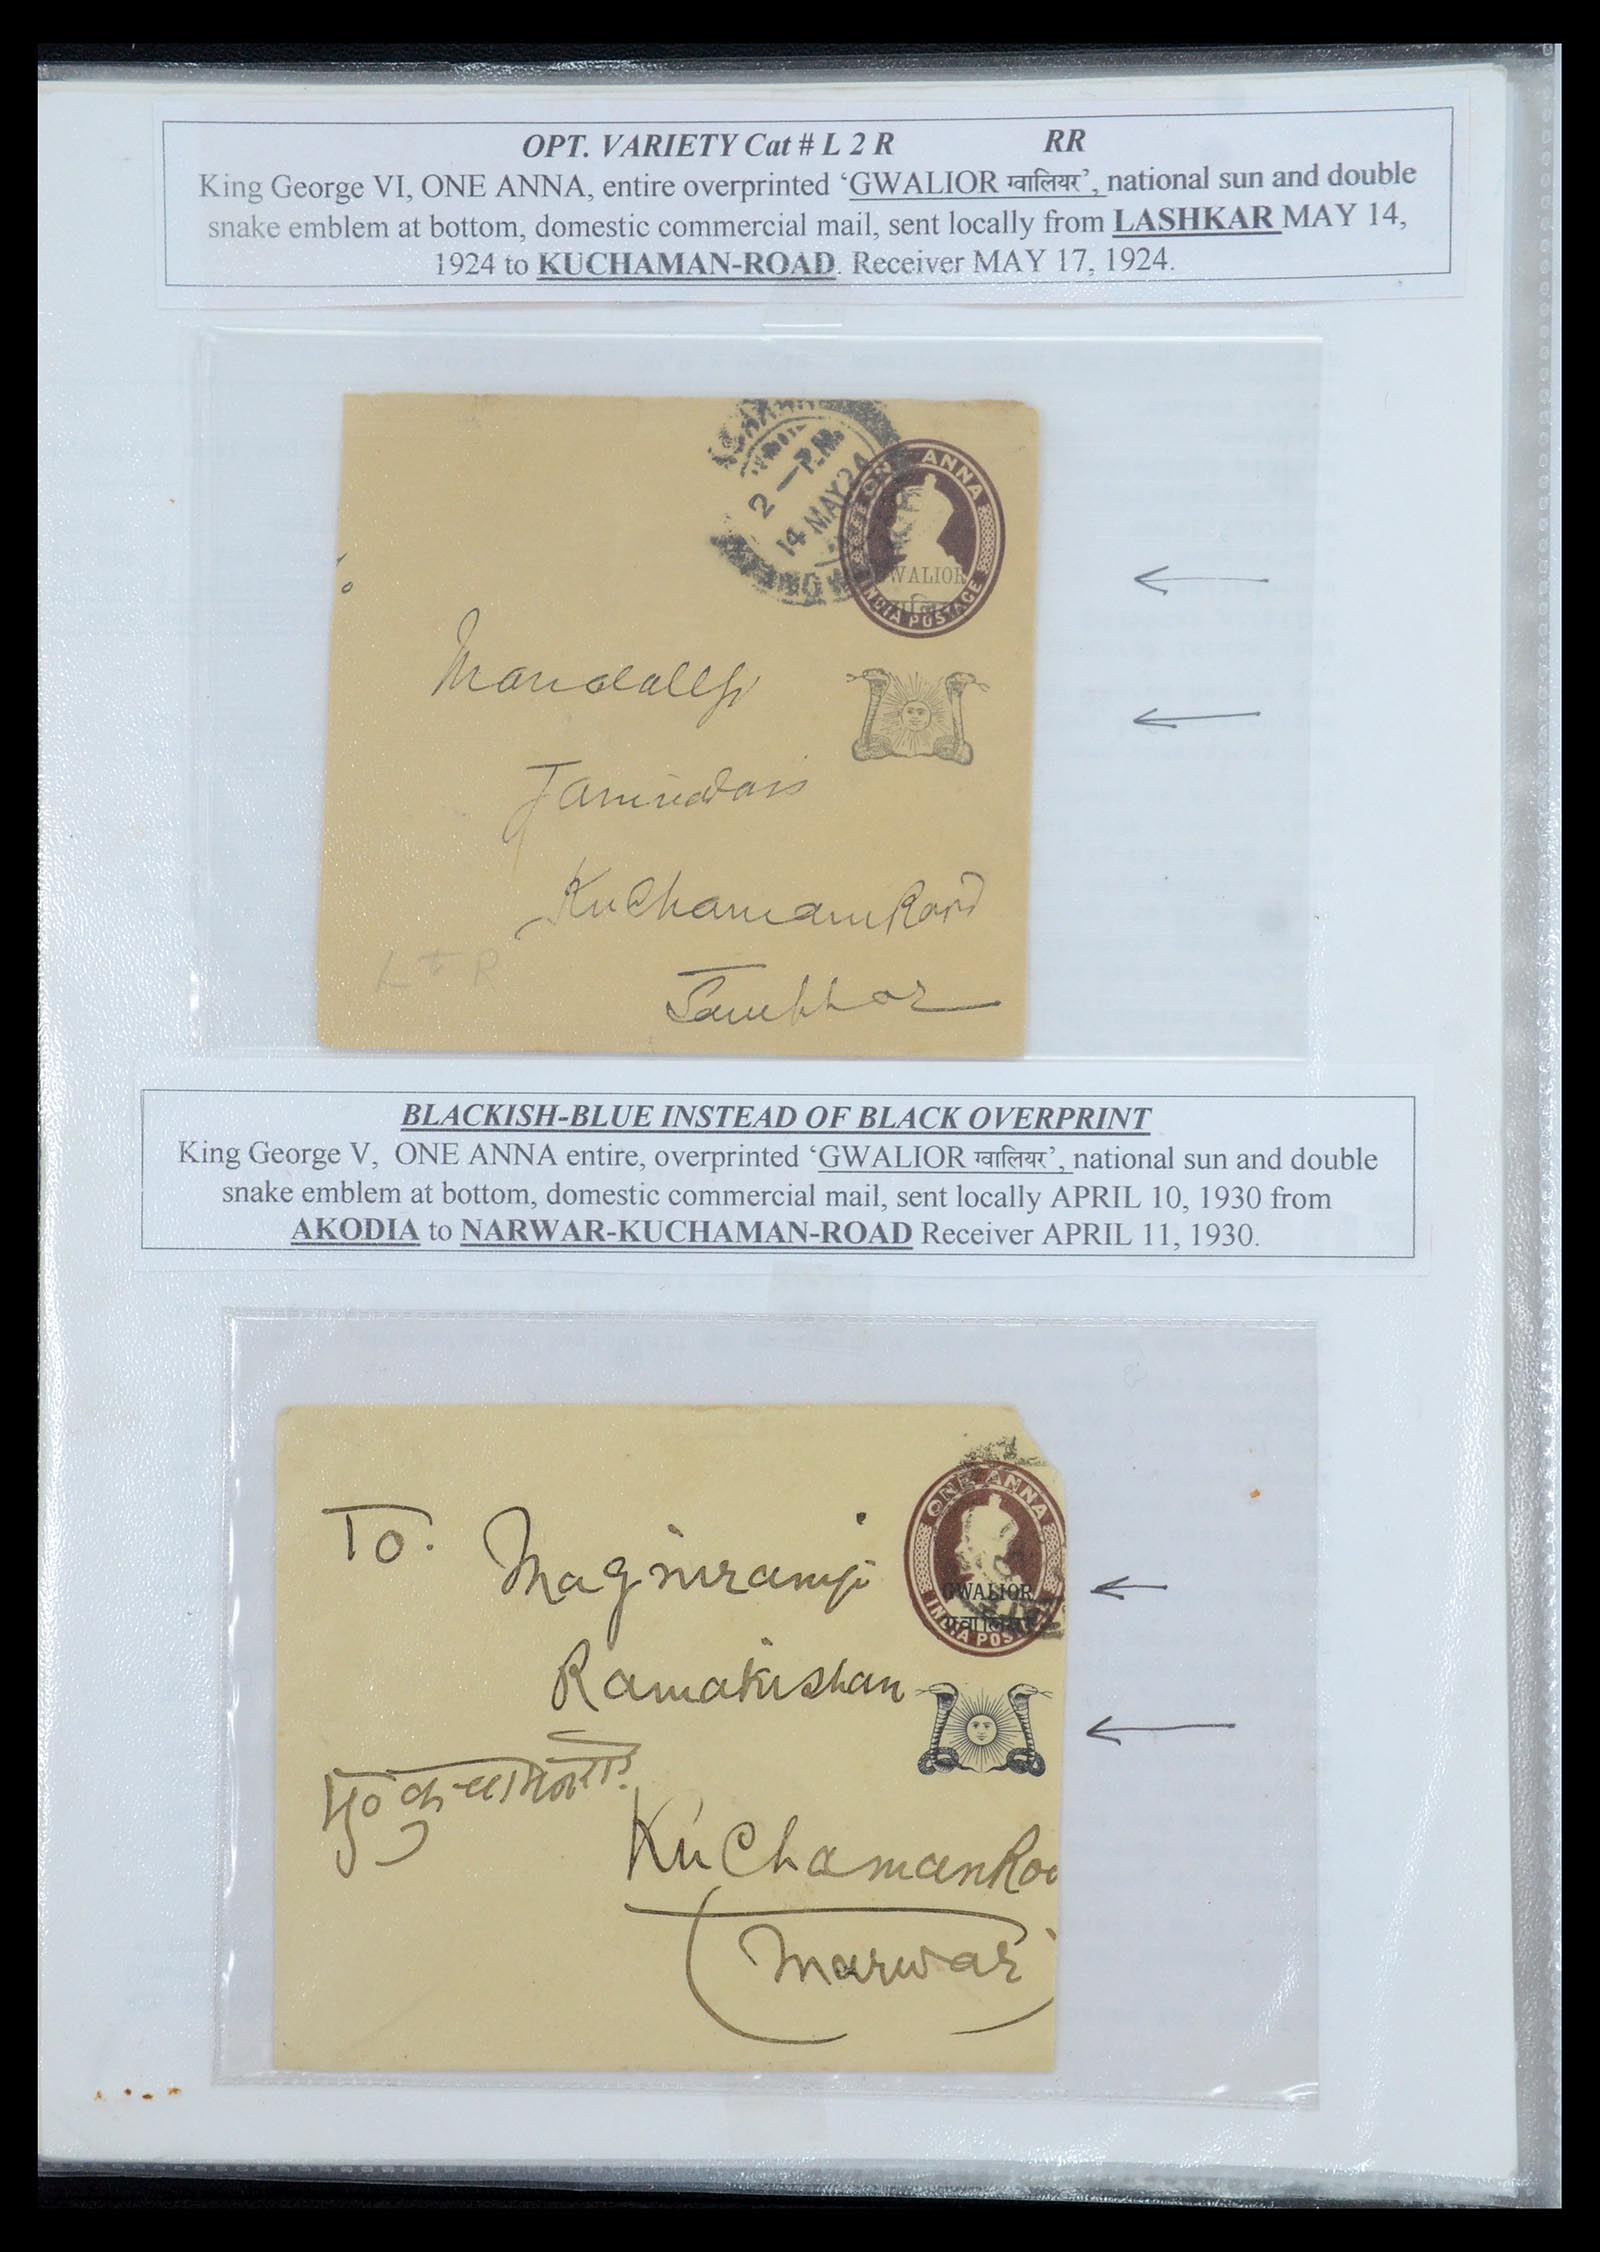 OPT. VARIETY Cat # L 2 R RR
King George VI, ONE ANNA, entire overprinted ‘GWALIOR ग्वालियर’, national sun and double
snake emblem at bottom, domestic commercial mail, sent locally from LASHKAR MAY 14,
1924 to KUCHAMAN-ROAD. Receiver MAY 17, 1924.
2 - P.M.
14 MAY 24
ONE ANNA
GWALIOR
INDIA POSTAGE
Kuchaman Road
Sambhar
BLACKISH-BLUE INSTEAD OF BLACK OVERPRINT
King George V, ONE ANNA entire, overprinted ‘GWALIOR ग्वालियर’, national sun and double
snake emblem at bottom, domestic commercial mail, sent locally APRIL 10, 1930 from
AKODIA to NARWAR-KUCHAMAN-ROAD Receiver APRIL 11, 1930.
ONE ANNA
GWALIOR
ग्वालियर
INDIA POS
To. Magniramji
Ramakishan
Kuchaman Roa
Marwar